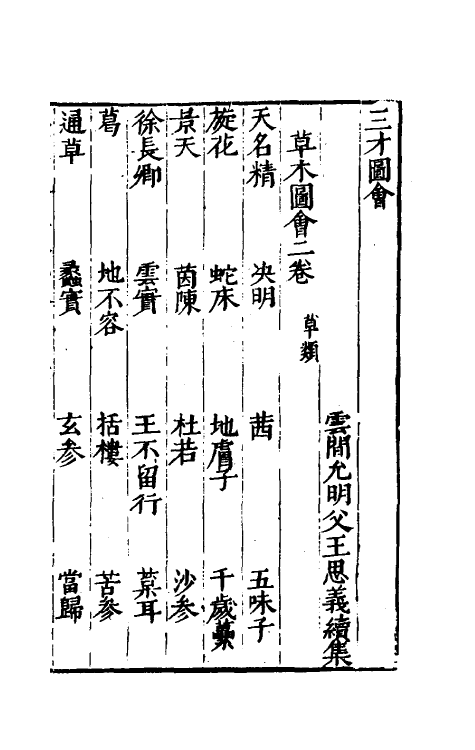 三才圖會
雲間允明父王思義續集
草木圖會二卷 草類
天名精 决明 茜 五味子
旋花 蛇床 地膚子 千歲蘽
景天 茵陳 杜若 沙参
徐長卿 雲實 王不留行 葈耳
葛 地不容 括樓 苦參
通草 蠡實 玄参 當歸